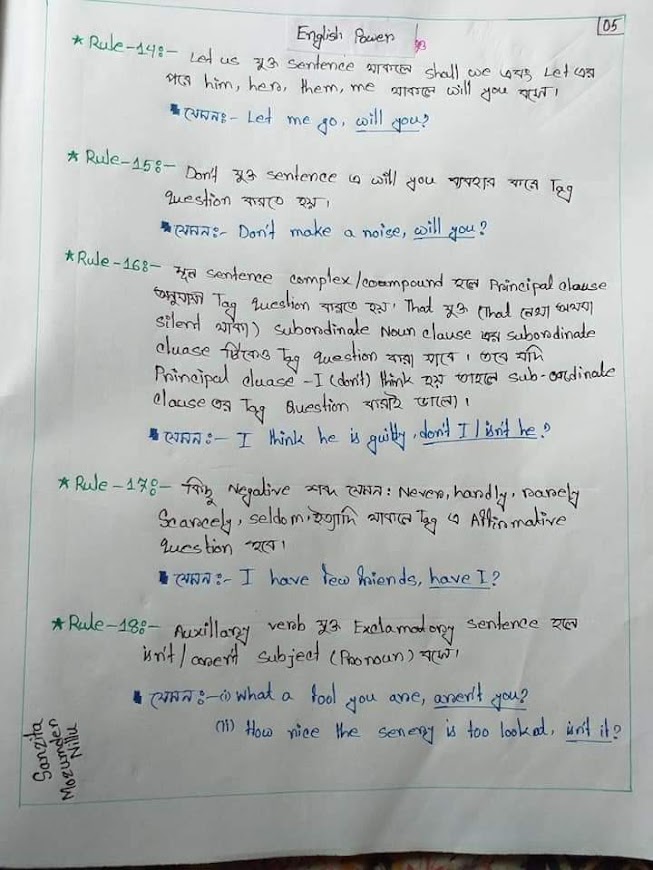 05
English Power
★ Rule-14:- Let us যুক্ত sentence থাকলে shall we এবং Let এর
পরে him, her, them, me থাকলে will you বসে।
যেমন:- Let me go, will you?
★ Rule-15:- Don't যুক্ত sentence এ will you ব্যবহার করে Tag
question করতে হয়।
যেমন:- Don't make a noise, will you?
★ Rule-16:- মূল sentence complex/compound হলে Principal clause
অনুযায়ী Tag question করতে হয়। That যুক্ত (That লেখা অথবা
silent থাকা) subordinate Noun clause এর subordinate
cluase টিকেও Tag question করা যাবে। তবে যদি
Principal cluase -I (don't) think হয় তাহলে sub-ordinate
clause এর Tag Question করাই ভালো)।
যেমন:- I think he is guilty, don't I / isn't he?
★ Rule-17:- কিছু Negative শব্দ যেমন: Never, hardly, rarely
Scarcely, seldom, ইত্যাদি থাকলে Tag এ Affirmative
question হবে।
যেমন:- I have few friends, have I?
★ Rule-18:- Auxillary verb যুক্ত Exclamadory sentence হলে
isn't/aren't subject (Pronoun) বসে।
যেমন:- (i) What a fool you are, aren't you?
(ii) How nice the senery is too looked, isn't it?
Sanzita
Mozumder
Nillu